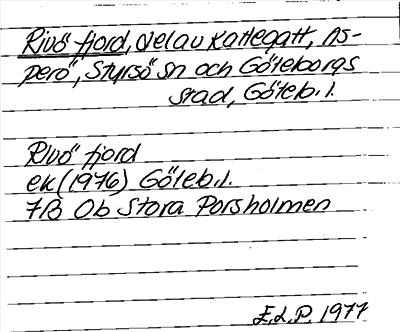 Rivö fjord, del av Kattegatt, As-
perö, Styrsö sn och Göteborgs
stad, Göteb. l.
Rivö fjord
ek (1976) Göteb. l.
7B 0b Stora Porsholmen
E.L.P. 1977